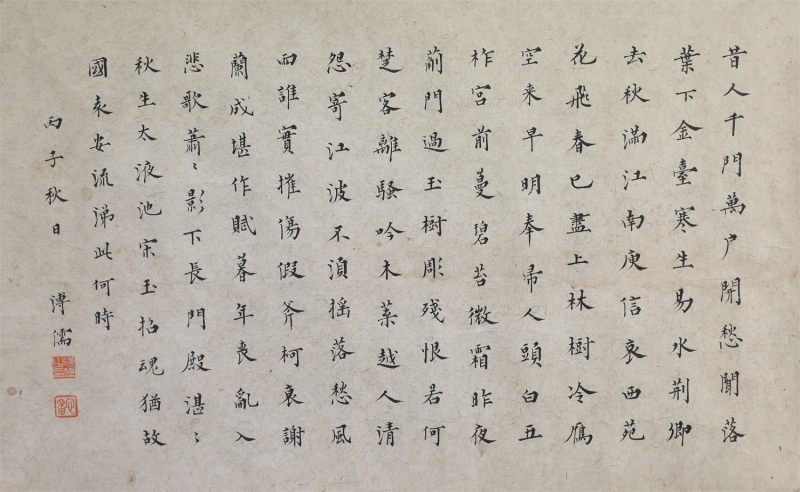 昔人千門萬户開愁聞落
葉下金臺寒生易水荆卿
去秋滿江南庾信哀西苑
花飛春已盡上林樹冷鴈
空来早明奉帚人頭白五
柞宮前蔓碧苔微霜昨夜
薊門過玉樹彫殘恨若何
楚客離騷吟木葉越人清
怨寄江波不湏揺落愁風
雨誰實摧傷假斧柯衰謝
蘭成堪作賦暮年喪亂入
悲歌蕭〻影下長門殿湛〻
秋生太液池宋玉招魂猶故
國袁安流涕此何時
丙子秋日
溥儒